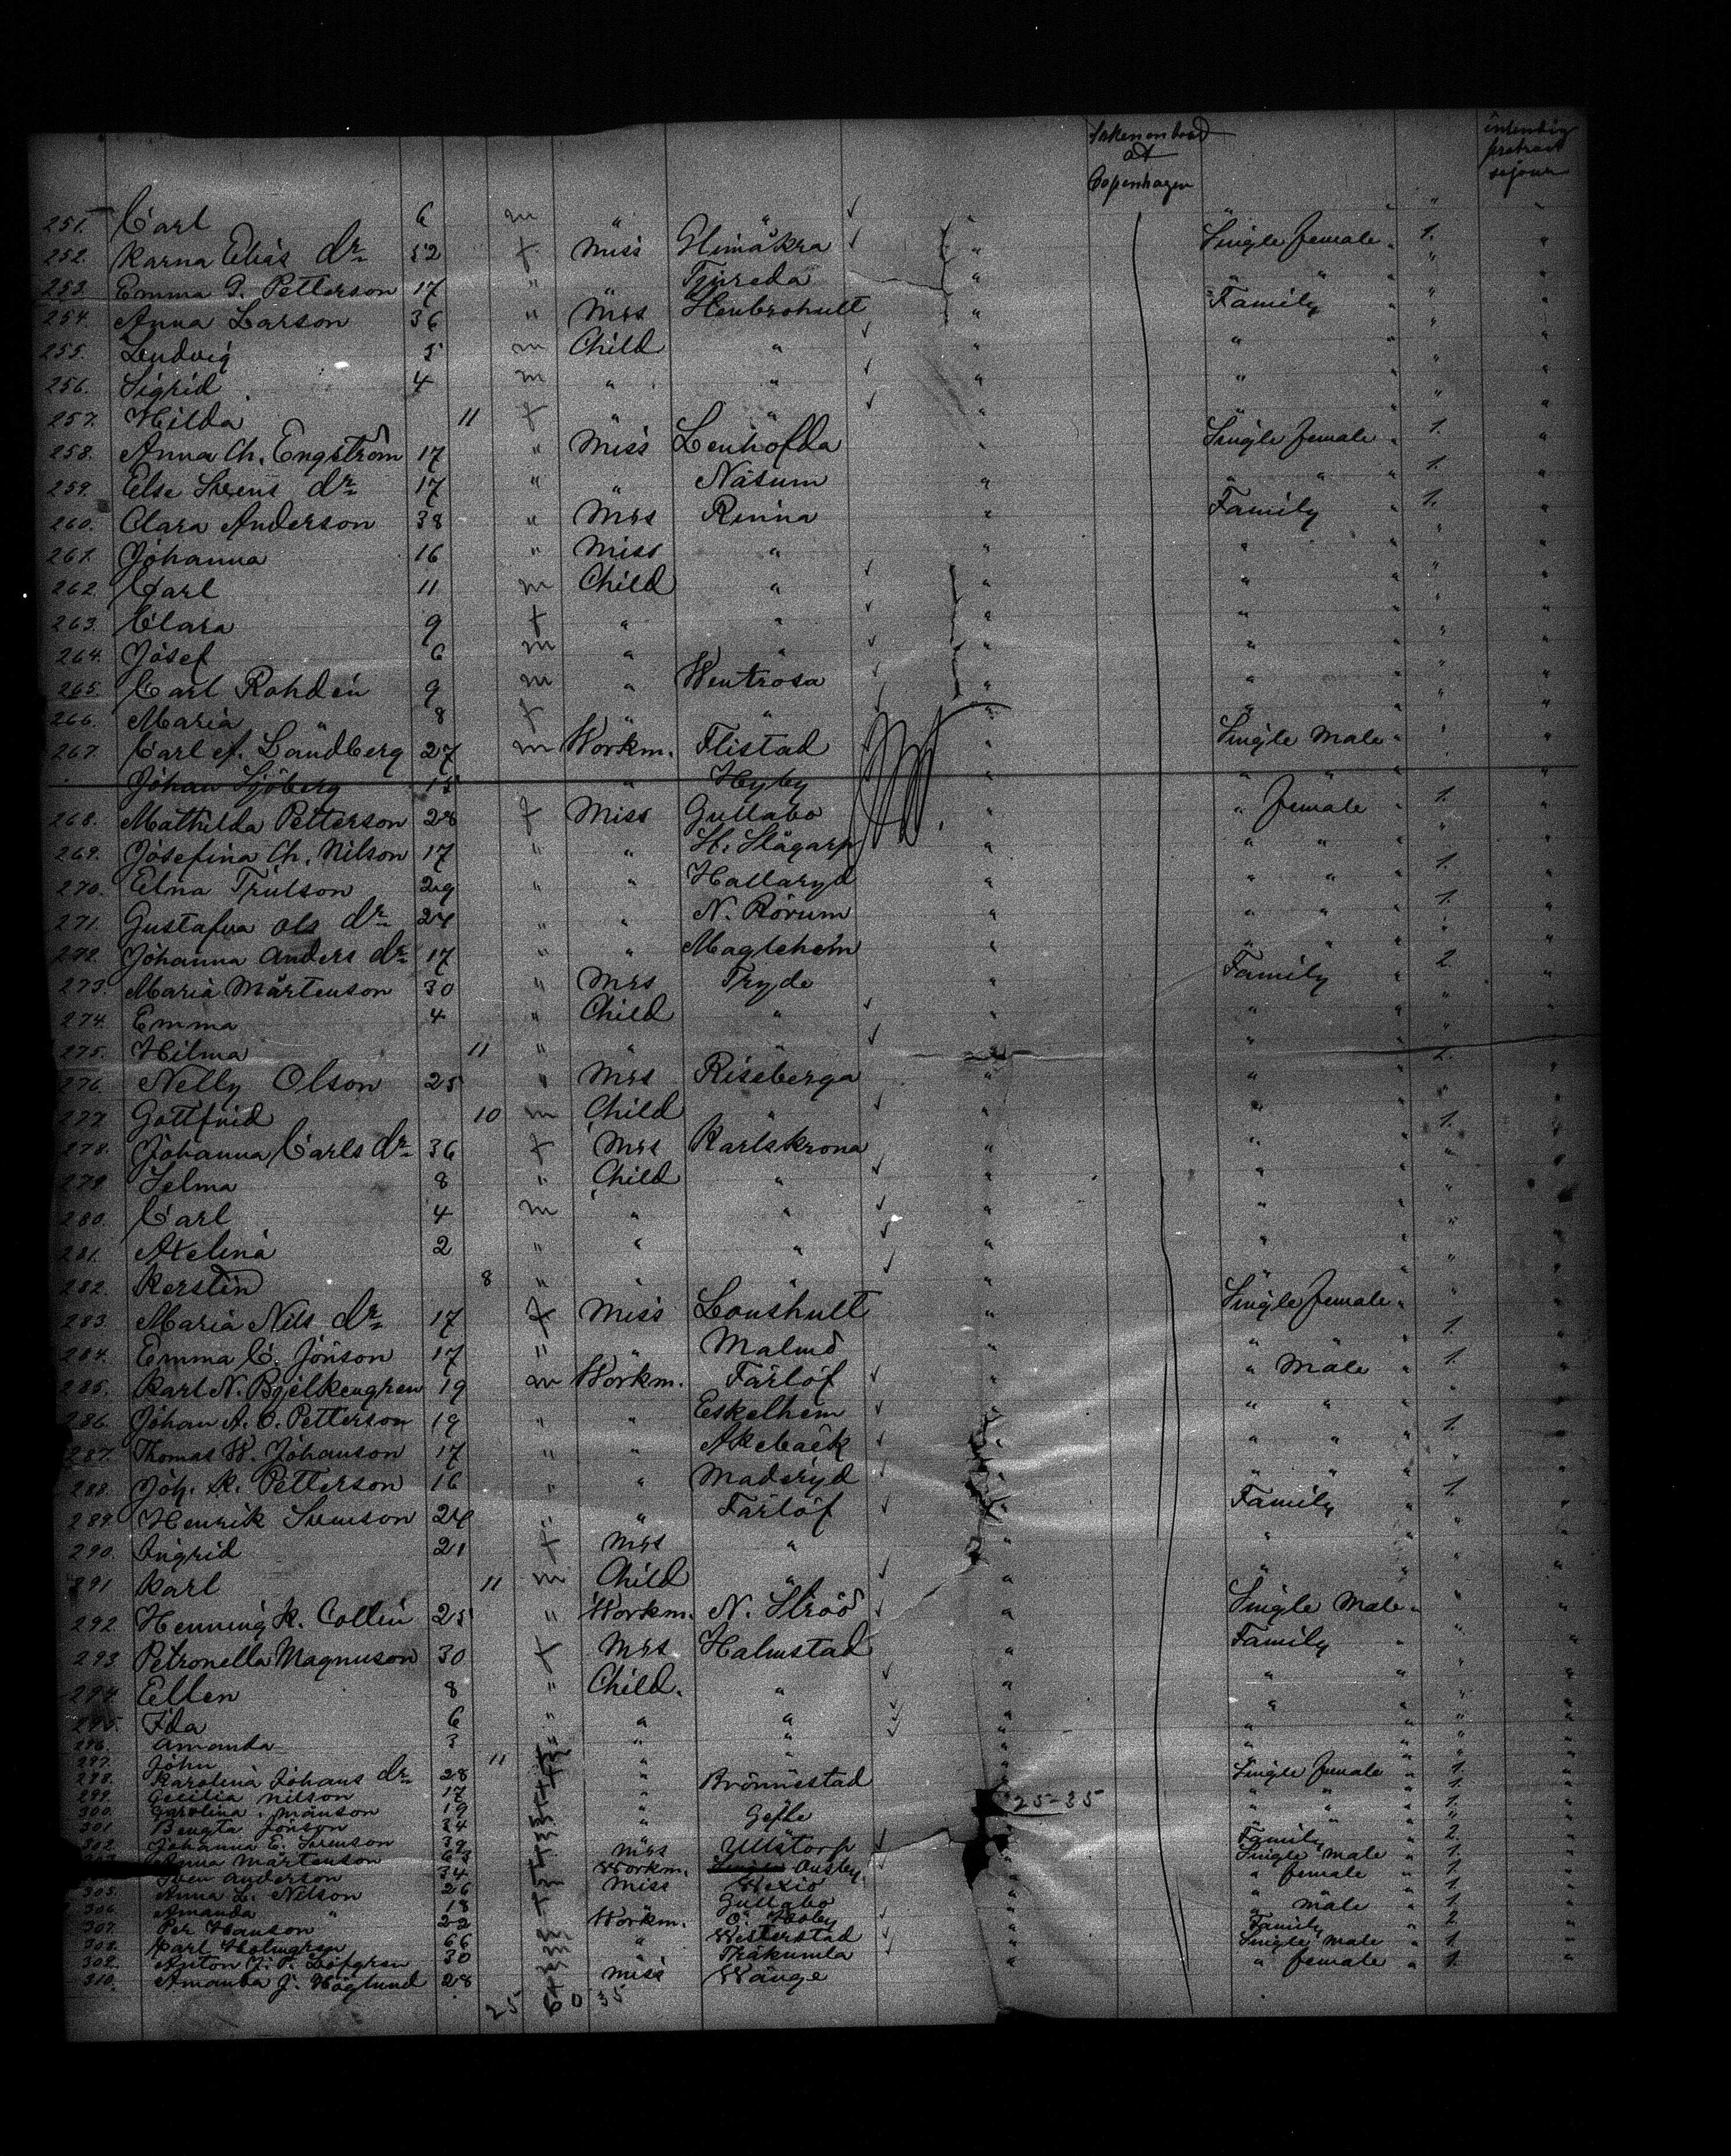 Taken on board at Copenhagen
intending protract sejour
251. Carl 6 m " " ✓ " " " "
252. Karna Elias dr 52 f Miss Glimåkra ✓ " Single female " 1. "
253. Emma G. Petterson 17 " " Tjureda " " " " " "
254. Anna Larson 36 " Mrs Stenbrohult " Family " " "
255. Ludvig 5 m Child " ✓ " " " " "
256. Sigrid 4 m " " ✓ " " " " "
257. Hilda 11 f " " ✓ " " " " "
258. Anna Ch. Engström 17 " Miss Lenhofda " Single female " 1. "
259. Else Svens dr 17 " " Näsum " " " " 1. "
260. Clara Anderson 38 " Mrs Rinna " Family " 1. "
261. Johanna 16 " Miss " " " " " "
262. Carl 11 m Child " ✓ " " " " "
263. Clara 9 f " " ✓ " " " " "
264. Josef 6 m " " ✓ " " " " "
265. Carl Rohdin 9 m " Wentrosa ✓ " " " " "
266. Maria 8 f " " ✓ " " " " "
267. Carl A. Landberg 27 m Workm. Flistad " Single Male " " "
Johan Sjöberg 15 " Hyby " " " " "
268. Mathilda Petterson 28 f Miss Gullabo " " female " 1. "
269. Josefina Ch. Nilson 17 " " St. Slågarp " " " " " "
270. Elna Trulson 29 " " Hallaryd " " " " 1. "
271. Gustafva Ols dr 24 " " N. Rörum " " " " 1. "
272. Johanna Anders dr 17 " " Maglehem " " " " " "
273. Maria Mårtenson 30 " Mrs Tryde " Family " 2. "
274. Emma 4 " Child " ✓ " " " " "
275. Hilma 11 " " " ✓ " " " " "
276. Nelly Olson 25 " Mrs Riseberga " " " 2. "
277. Gottfrid 10 m Child " ✓ " " " " "
278. Johanna Carls dr 36 f Mrs Karlskrona " " " 1. "
279. Selma 8 " Child " ✓ " " " " "
280. Carl 4 m " " ✓ " " " " "
281. Axelina 2 " " " ✓ " " " " "
282. Kerstin 8 " " " ✓ " " " " "
283. Maria Nils dr 17 f Miss Lonshult " Single female " " "
284. Emma C. Jönson 17 " " Malmö " " " " 1. "
285. Karl N. Bjelkengren 19 m Workm. Färlöf ✓ " " Male " 1. "
286. Johan A. O. Petterson 19 " " Eskelhem ✓ " " " " " "
287. Thomas W. Johanson 17 " " Akebäck ✓ " " " " 1. "
288. Joh. K. Petterson 16 " " Maderyd ✓ " " " " " "
289. Henrik Svenson 24 " " Färlöf ✓ " Family " 1. "
290. Ingrid 21 f Mrs " " " " " "
291. Karl 11 m Child " ✓ " " " " "
292. Henning K. Collin 25 " Workm. N. Ströö ✓ " Single Male " " "
293. Petronella Magnuson 30 f Mrs Halmstad " Family " " "
294. Ellen 8 " Child. " ✓ " " " " "
295. Ida 6 " " " ✓ " " " " "
296. Amanda 3 " " " ✓ " " " " "
297. John 11 " " " " " " "
298. Karolina Johans dr 28 " Brönnestad " Single female " 1. "
299. Cecilia Nilson 17 " " " " " 1. "
300. Carolina Månson 19 " Gefle 25-35 " " " 1. "
301. Bengta Jönson 24 " " " " " " "
302. Johanna E. Svenson 39 Mrs Ullstorp ✓ " Family " 2. "
Anna Mårtenson 63 Workm. Ousby ✓ " Single Male " 1. "
Sven Anderson 34 Miss Wexiö " " female " 1. "
305. Anna L. Nilson 26 Gullabo " " "
306. Amanda " 18 Workm. Ö. Hoby ✓ " " male " 1. "
307. Per Hanson 22 " Westerstad ✓ " Family " 2. "
308. Karl Holmgren 66 " Träkumla ✓ " Single male " 1. "
309. Anton J. P. Löfgren 30 Miss Wänge " " female " 1. "
310. Amanda J. Höglund 28
25 60 35